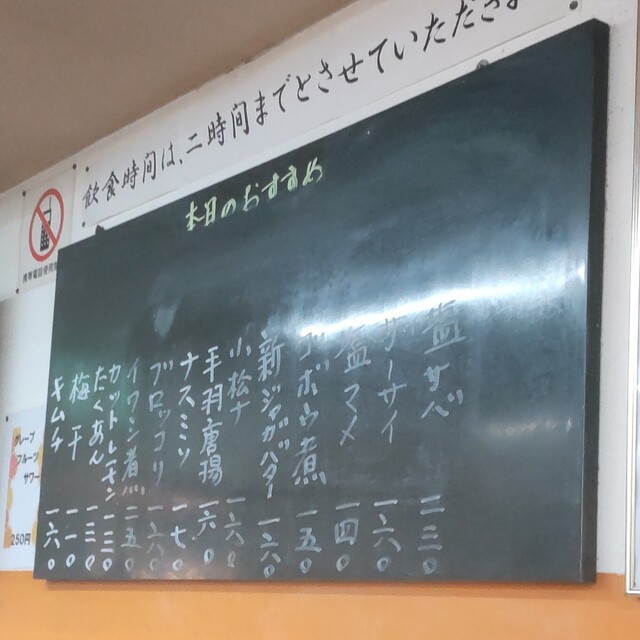 飲食時間は、二時間までとさせていただきま
本日のおすすめ
塩サバ 二三〇
ザーサイ 一六〇
塩マメ 一四〇
ゴボウ煮 一五〇
新ジャガバター 一六〇
小松ナ 一六〇
手羽唐揚 一六〇
ナスミソ 一七〇
ブロッコリ 一六〇
イワシ煮 一五〇
カットレモン 一三〇
たくあん 一三〇
梅干 一一〇
キムチ 一六〇
グレープ
フルーツ
サワー
250円